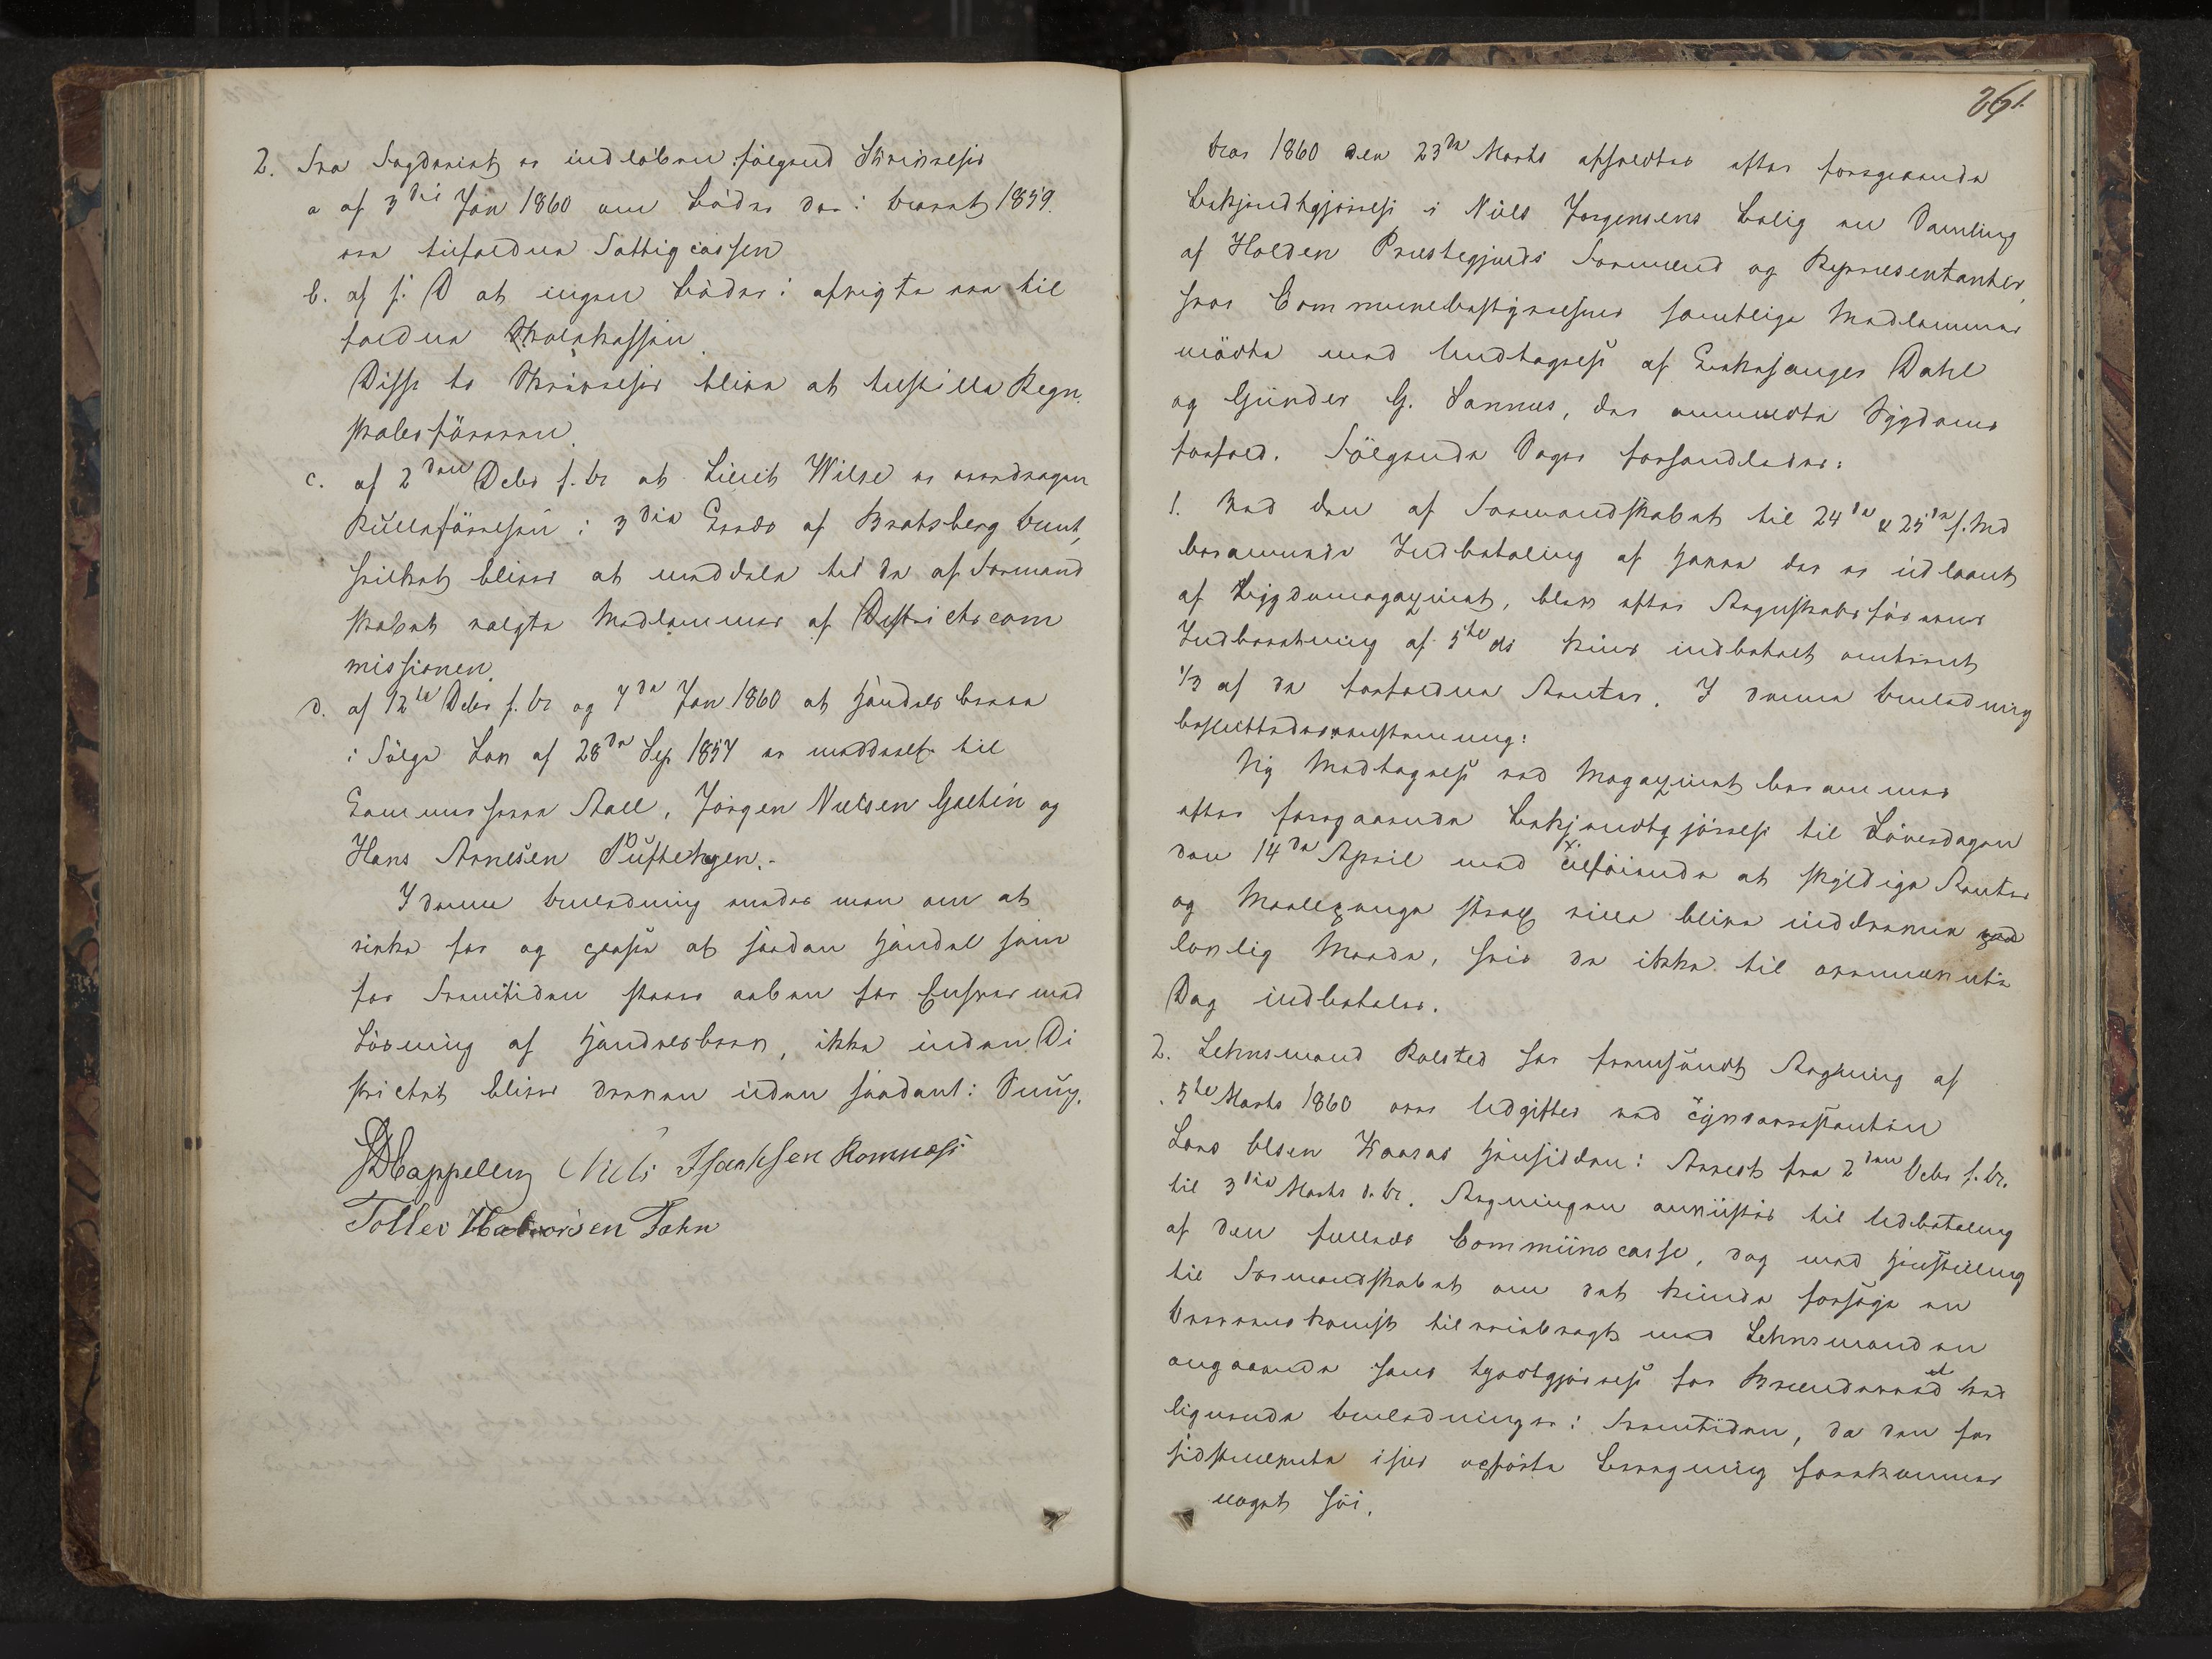 2. Fra Fogderiet er indløbne følgende Skrivelser
a af 3die Jan 1860 om Bøder der i Aaret 1859.
ere tilfaldne Fattigcassen
b. af s. D at ingen Bøder i afvigte ere til
faldne Skolekassen.
Disse to Skrivelser bliver at tilstille Regn
skabsføreren.
c. af 2den Decbr f. Ar at Lieut Wille er overdragen
Rulleførelsen i 3die Geods af Bratsberg Amt,
hvilket bliver at meddele til de af Formand
skabet valgte Medlemmer af Districtscom
missionen.
d. af 12te Decbr f. Ar og 7de Jan 1860 at Handelsbreve
i Følge Lov af 28de Sep 1857 er meddeelt til
Aall, Jørgen Nielsen og
Hans Arnesen
I denne Anledning enedes man om at
virke for og paase at saadan Handel som
for Fremtiden staaer aaben for Enhver med
Løsning af Handelsbrev, ikke inden Di
strictet bliver dreven uden saadant i Smug.
D Cappelen Niels Isaksen Romnæs
Tollev Halvorsen Dahn
261.
Aar 1860 den 23de Marts afholdtes efter foregaaende
Bekjendtgjørelse i Niels Jørgensens Bolig en Samling
af Holden Præstegjelds Formænd og Repræsentanter,
hvor Communebestyrelsens samtlige Medlemmer
mødte med Undtagelse af Kirkesanger Dahl
og Gunder G. Sannes, der anmeldte Sygdoms
forfald. Følgende Sager forhandledes:
1. Ved den af Formandskabet til 24de & 25de f. Md
berammede Indbetaling af Korn der er udlaant
af Bygdemagazinet, blev efter Regnskabsførerens
Indberetning af 5te ds kuns indbetalt omtrent
1/3 af de forfaldne Renter. I denne Anledning
besluttedes eenstemmig:
Ny Modtagelse ved Magazinet berammes
efter foregaaende Bekjendtgjørelse til Løverdagen
den 14de April med Tilføiende at skyldige Renter
og Maalepenge strax ville blive inddrevne paa
lovlig Maade, hvis de ikke til ovennævnte
Dag indbetales.
2. Lehnsmand Rolsted har fremsendt Regning af
5te Marts 1860 over Udgifter ved Tyvsarrestanten
Lars Olsen Hensidden i Arrest fra 2den Decbr f. Ar.
til 3die Marts d. Ar. Regningen anvistes til Udbetaling
af den fælleds Communecasse, dog med Henstilling
til Formandskabet om det kunde forsøge en
Overenskomst tilveiebragt med Lehnsmanden
angaaende hans Godtgjørelse for Brændeved ved
lignende Anledninger i Fremtiden, da den for
sidstnævnte i hver opførte Beregning forekommer
noget høi.